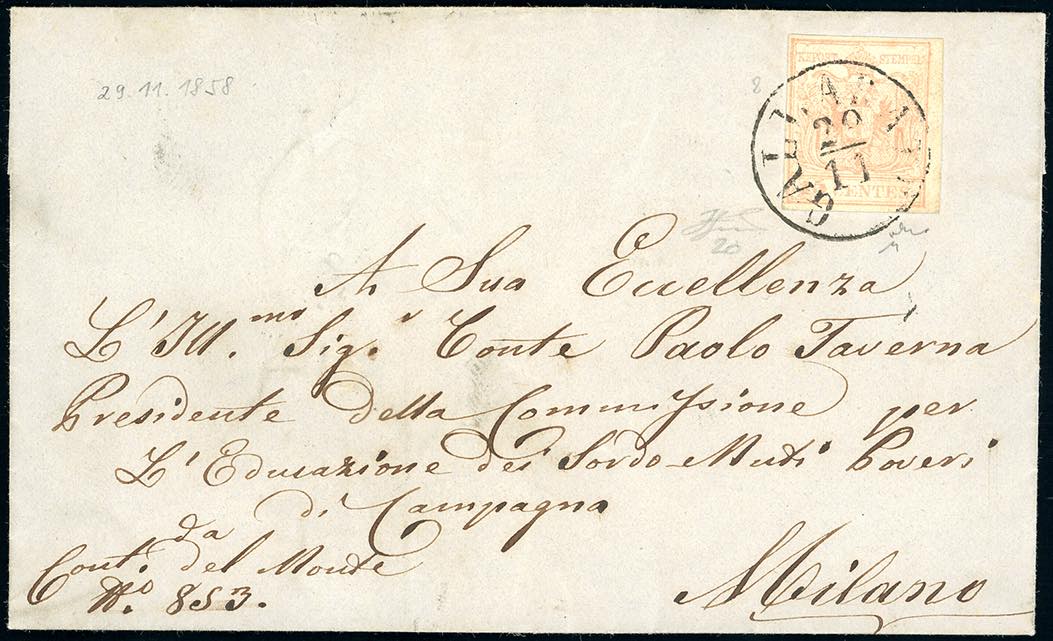 29.11.1858
8
KKPOST STEMPEL
GALLARATE
29
11
CENTES
20
A Sua Eccellenza
L'Ill.mo Sig.r Conte Paolo Taverna
Presidente della Commissione per
L'Educazione dei Sordo-Muti Poveri
di Campagna
Conta.da del Monte
No. 853.
Milano